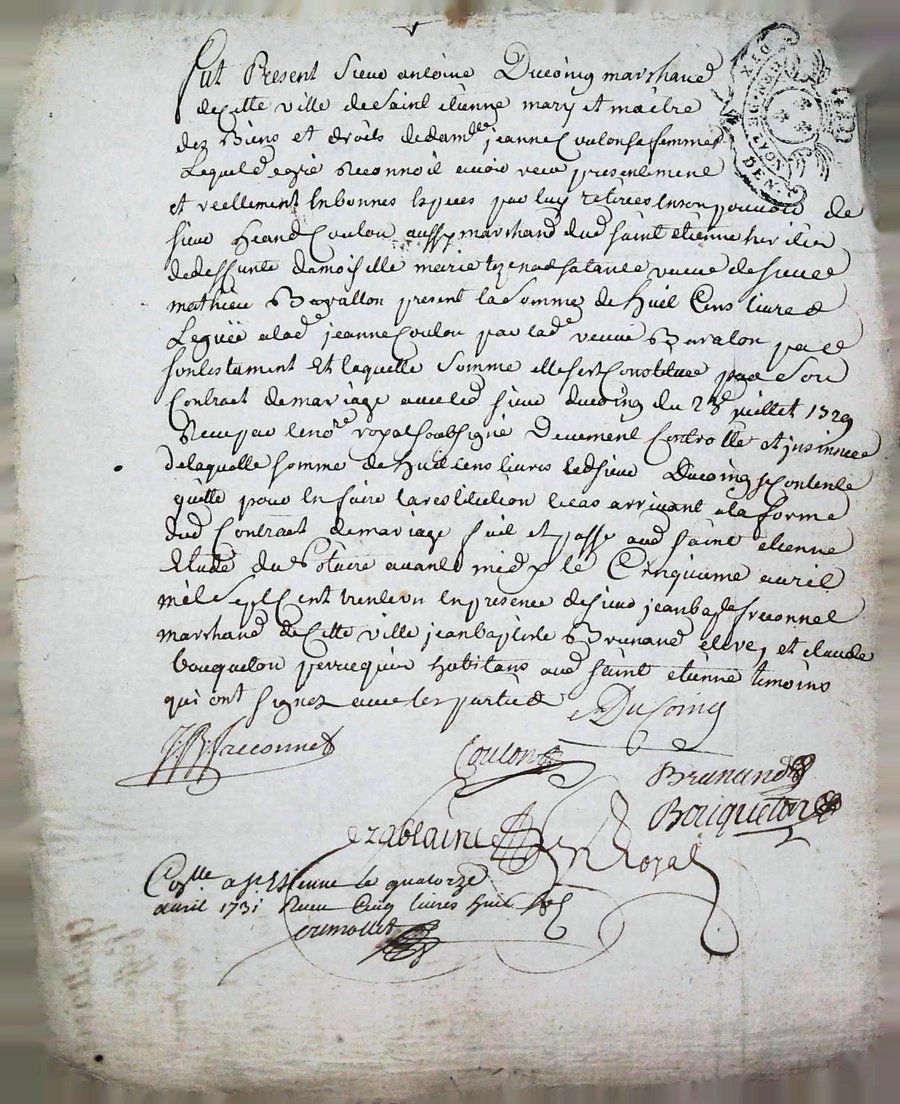 fut Present sieur antoine Ducoing marchand
de Cette ville de saint etienne mary et maitre
dez Biens et droits de dam.lle jeanne Coulon sa femme
Lequel de gré Reconnoit avoir receu presentement
et reellement en bonnes especes par luy retirees en son pouvoir de
sieur Coulon aussy marchand dud saint etienne heritier
de deffunte damoiselle marie veuve de sieur
mathieu Bavallon present la somme de huit Cens livres
Leguée a lad.e jeanne Coulon par lad.e veuve Bavalon par
son testament Et laquelle somme elle s'est Constituée par son
Contract de mariage avec led sieur ducoing du 28.e juillet 1729
Receu par le no.re royal soubsigné Deuement Controllé et jnsinué
de laquelle somme de huit cens livres led sieur Ducoing se Contente
quitte pour en faire la restitution le cas arrivant a la forme
dud Contract de mariage fait et passé aud saint etienne
Etude du Notaire avant midy le Cinquieme avril
mil sept Cent trente un en presence de sieur jean bap.te freconnet
marchand de Cette ville jean baptiste Brunand eleve, et claude
bouqueton perruquier habitans aud saint etienne temoins
qui ont signez avec les parties
Ducoing
JB freconnet
Coulon
Brunand
Bouqueton
ezablaine n.re Royal
C.lle a s.t Etienne le quatorze
avril 1731 Receu Cinq livres huit sols
GEN. DE LYON
DIX DEN.